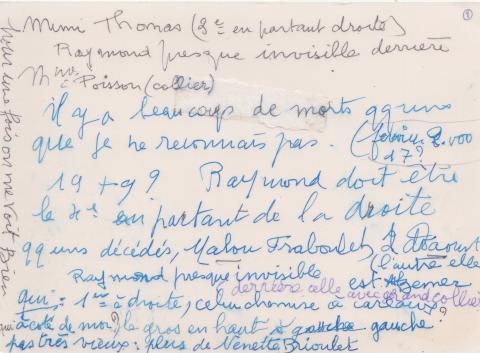 Mimi Thomas (2e en partant droite)
Raymond presque invisible derrière
Mme Poisson (collier)
il y a beaucoup de morts qq uns
que je ne reconnais pas. (février 2.000
17?
19+99 Raymond doit être
le 4e en partant de la droite
qq uns décédés, Malou Fraboulet, J
(l'autre elle
Raymond presque invisible est
derrière celle avec grand collier
qui = 1er à droite, celui chemise à carreaux?
qui à côté de moi? le gros en haut à gauche
pas très vieux: plus de Nenette Brioulet
pour une fois on me voit Bien
1